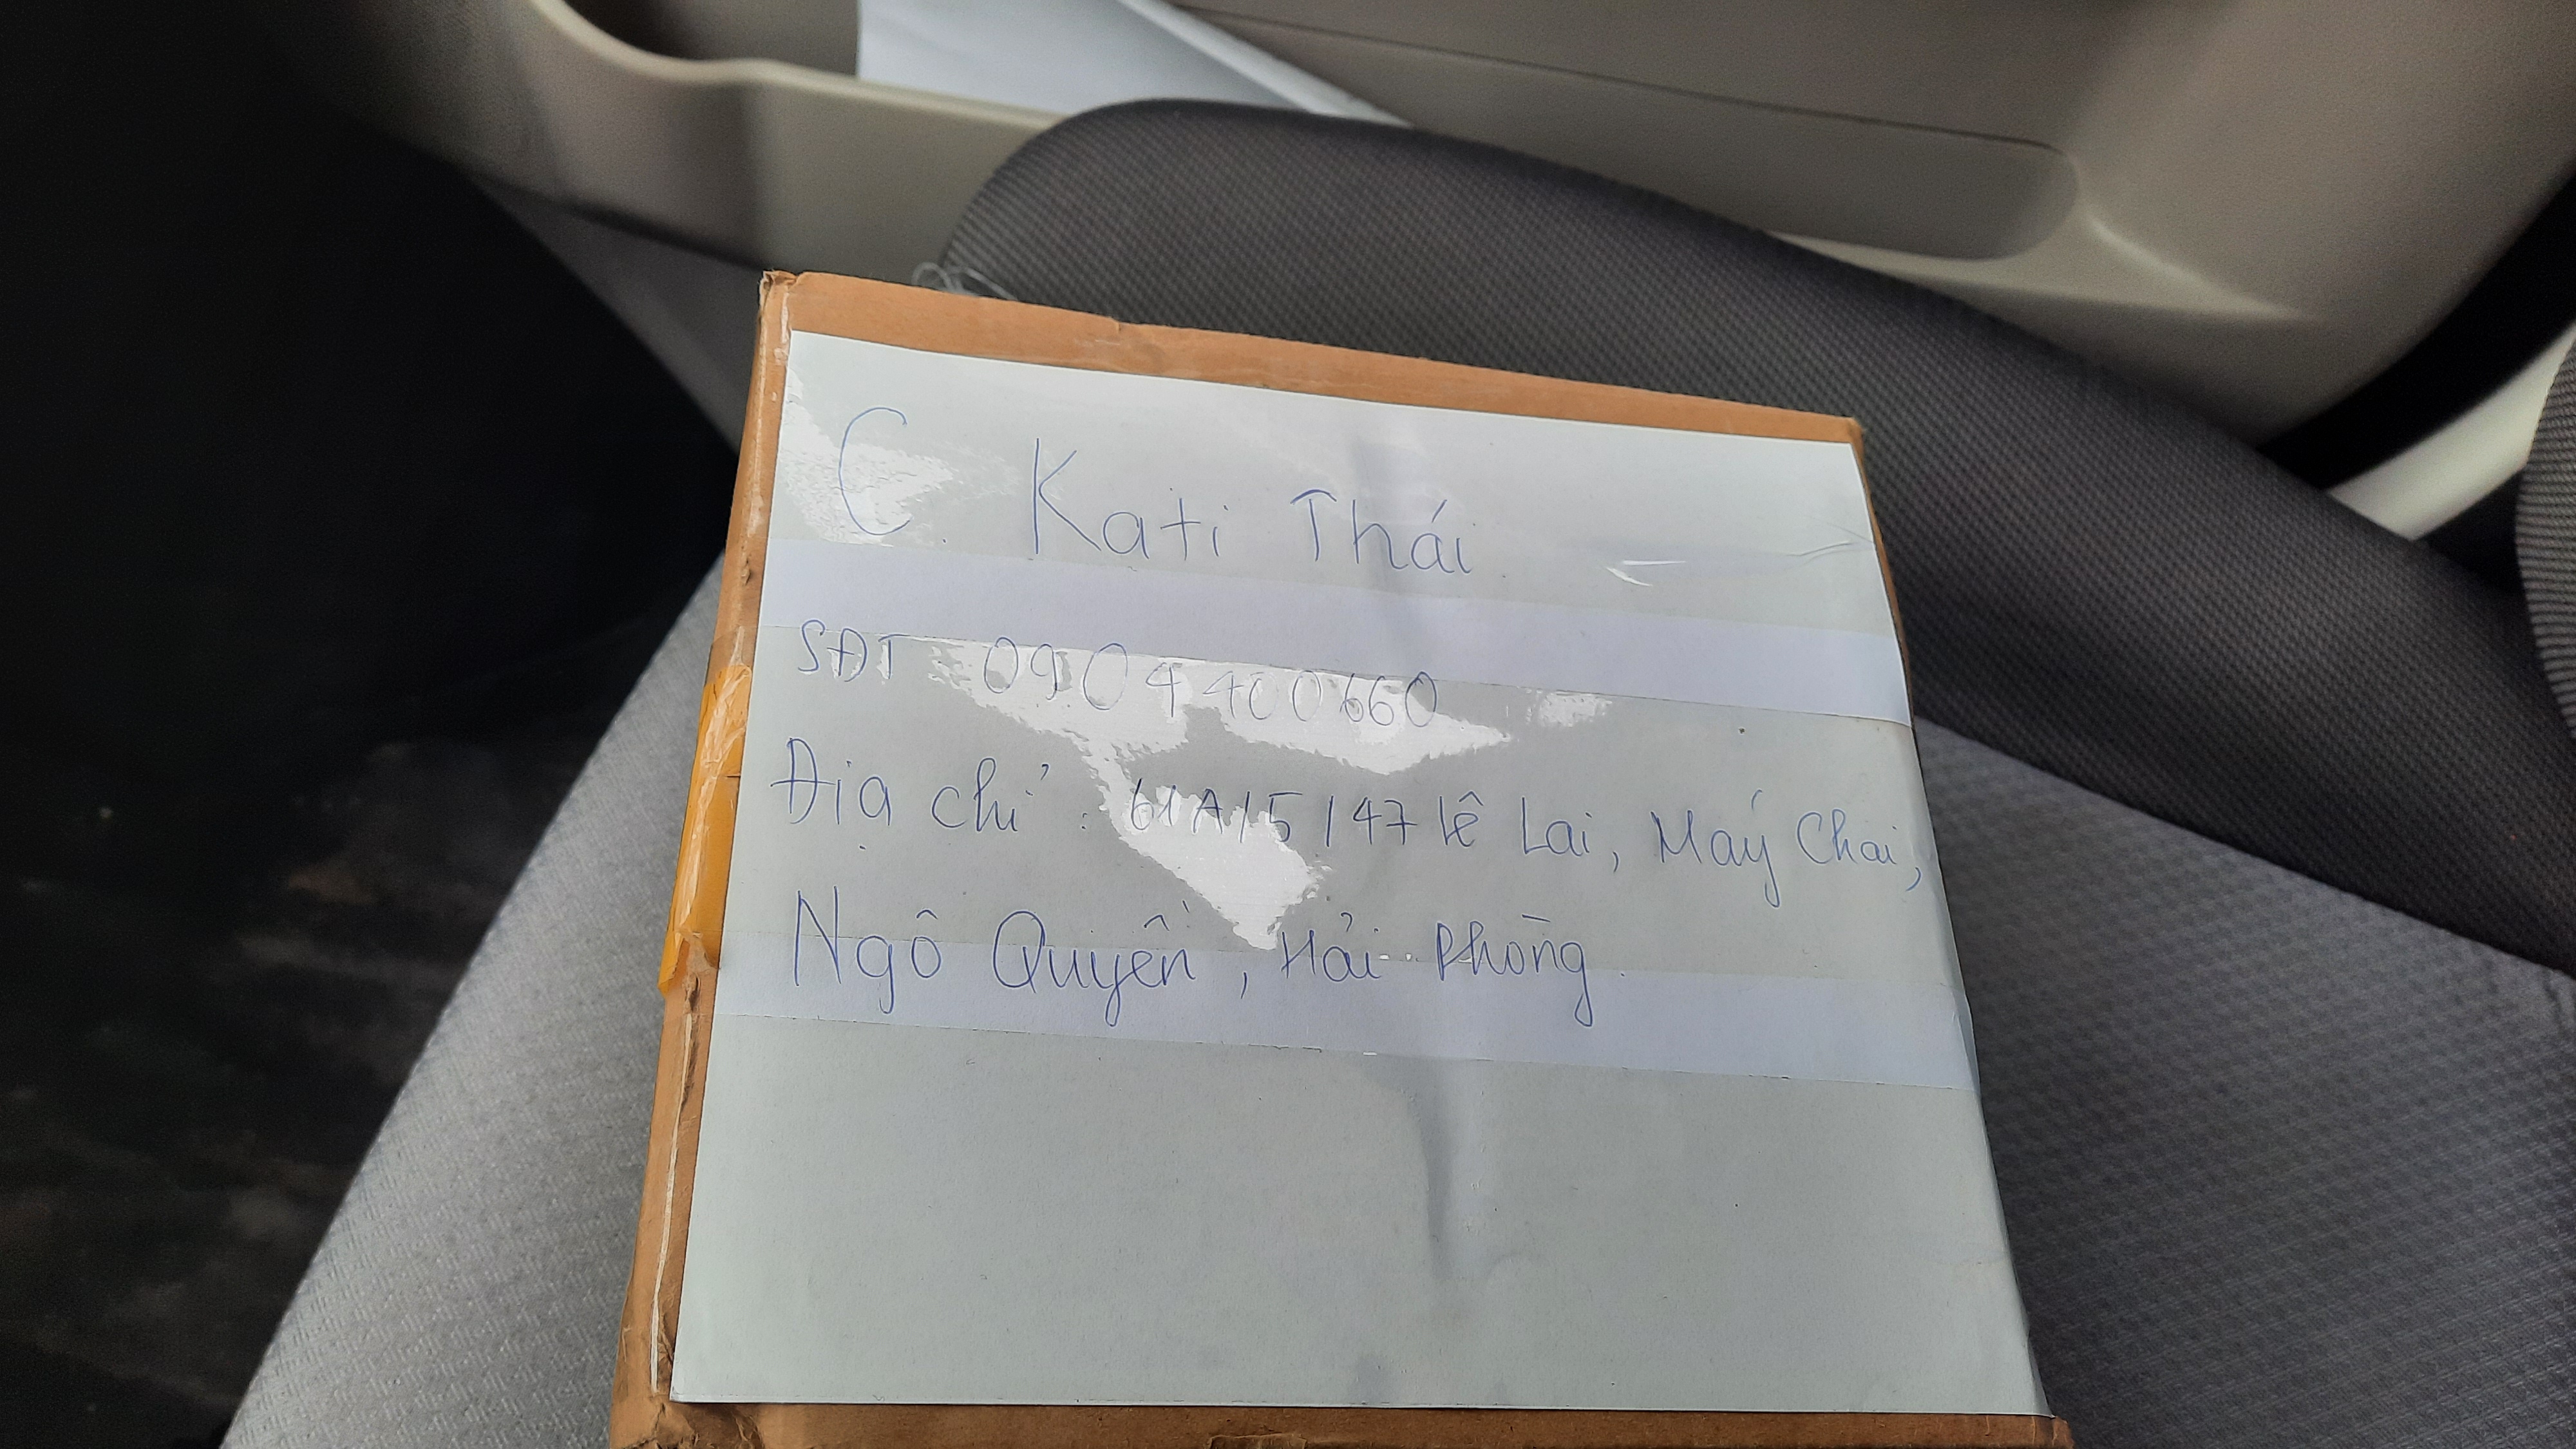 C. Kati Thái
SĐT 0904400660
Địa chỉ : 61A/5/47 Lê Lai, Máy Chai,
Ngô Quyền, Hải Phòng.